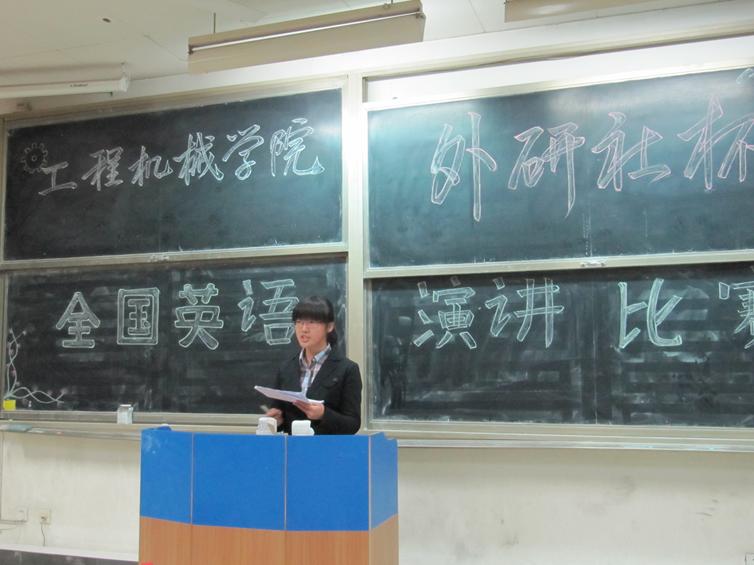 工程机械学院
外研社杯
全国英语
演讲比赛